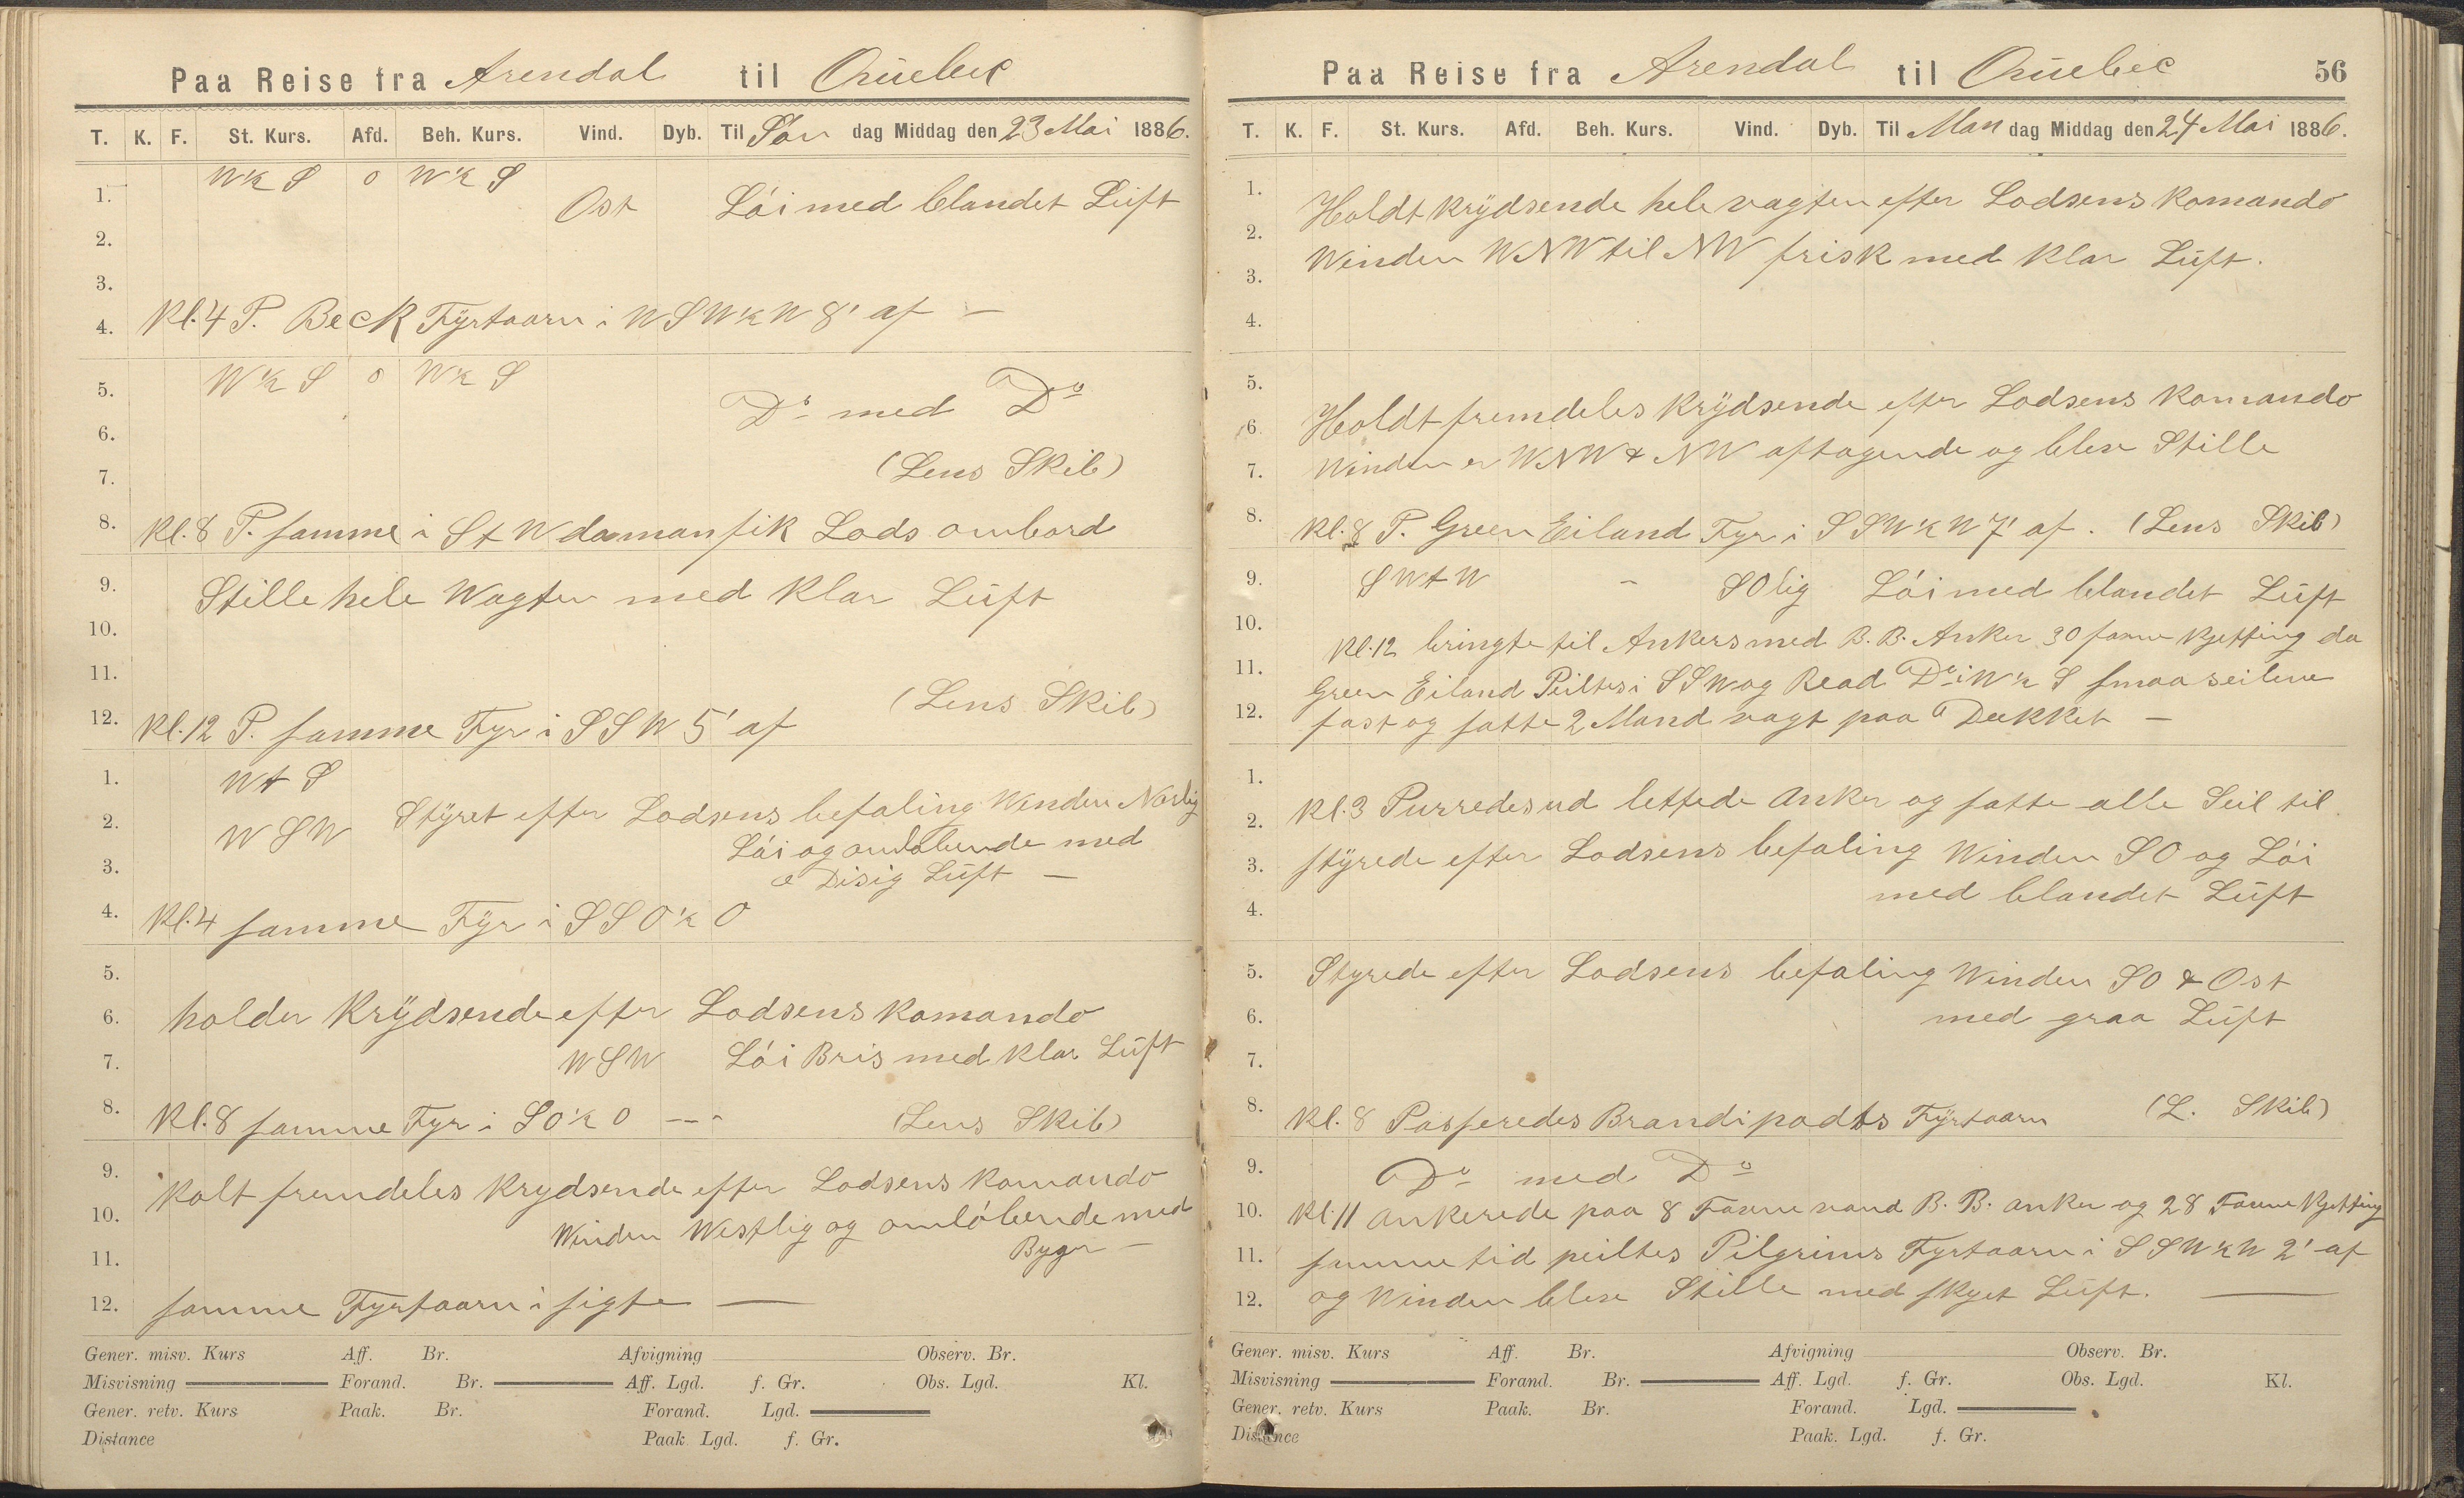 Paa Reise fra Arendal til Quebec
T. K. F. St. Kurs. Afd. Beh. Kurs. Vind. Dyb. Til Søn dag Middag den 23 Mai 1886.
W½S 0 W½S
1. Ost Löi med blandet Luft
2.
3.
4. Kl. 4 P. Beck Fyrtaarn i WSW½W 8' af —
W½S 0 W½S
5. Do med Do
6.
7. (Lens Skib)
8. Kl. 8 P. samme i StW da man fik Lods ombord
9. Stille hele Wagten med Klar Luft
10.
11. (Lens Skib)
12. Kl. 12 P. samme Fyr i SSW 5' af
1. WtS
2. WSW Styret efter Lodsens befaling Winden Norlig
Löi og omløbende med
3. Disig Luft —
4. Kl. 4 samme Fyr i SSO½O
5.
6. holder Krydsende efter Lodsens Komando
7. WSW Löi Bris med Klar Luft
8. Kl. 8 samme Fyr i SO½O — (Lens Skib)
9. Holt fremdeles Krydsende efter Lodsens Komando
10. Winden Westlig og omløbende med
11. Byger —
12. samme Fyrtaarn i sigte —
Gener. misv. Kurs Aff. Br. Afvigning Observ. Br.
Misvisning Forand. Br. Aff. Lgd. f. Gr. Obs. Lgd. Kl.
Gener. retv. Kurs Paak. Br. Forand. Lgd.
Distance Paak. Lgd. f. Gr.
Paa Reise fra Arendal til Quebec 56
T. K. F. St. Kurs. Afd. Beh. Kurs. Vind. Dyb. Til Man dag Middag den 24 Mai 1886.
1. Holdt Krydsende hele vagten efter Lodsens Komando
2. Winden WNW til NW frisk med Klar Luft.
3.
4.
5.
6. Holdt fremdeles Krydsende efter Lodsens Komando
7. Winden er WNW & NW aftagende og blev Stille
8. Kl. 8 P. Green Eiland Fyr i SSW½W 7' af. (Lens Skib)
9. SWtW - SOlig Löi med blandet Luft
10. Kl. 12 bringte til Ankers med B. B. Anker 30 favne Kjetting da
11. Green Eiland Peiltes i SSW og Read Do i W½S smaa seilene
12. fast og satte 2 Mand vagt paa Dekket —
1.
2. Kl. 3 Purredes ud lettede Anker og satte alle Seil til
3. styrede efter Lodsens befaling Winden SO og Löi
4. med blandet Luft
5. Styrede efter Lodsens befaling Winden SO & Ost
6. med graa Luft
7.
8. Kl. 8 Passeredes Brandipodts Fyrtaarn (L. Skib)
9. Do med Do
10. Kl. 11 ankerede paa 8 Favne vand B. B. anker og 28 Favne Kjetting
11. samme tid peiltes Pilgrims Fyrtaarn i SSW½W 2' af
12. og Winden blev Stille med skyet Luft. —
Gener. misv. Kurs Aff. Br. Afvigning Observ. Br.
Misvisning Forand. Br. Aff. Lgd. f. Gr. Obs. Lgd. Kl.
Gener. retv. Kurs Paak. Br. Forand. Lgd.
Distance Paak. Lgd. f. Gr.